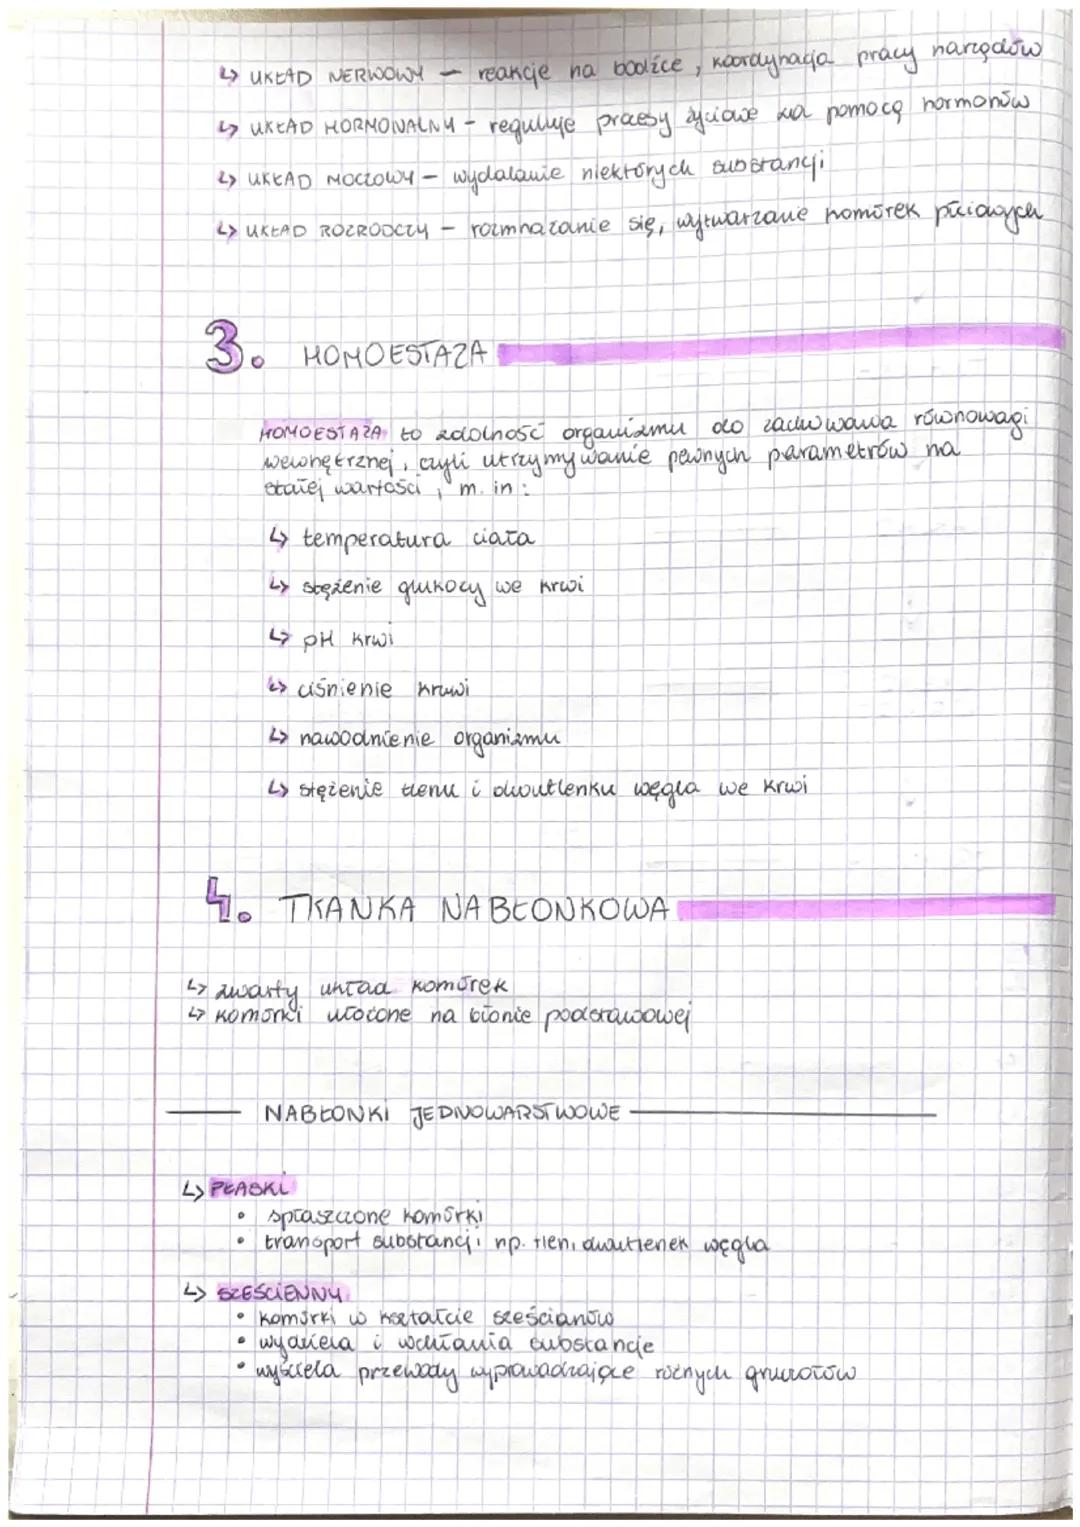 ↳ UKŁAD NERWOWY – reakcje na bodźce, koordynacja pracy narządów
↳ UKŁAD HORMONALNY – reguluje procesy życiowe za pomocą hormonów
↳ UKŁAD MOCZOWY – wydalanie niektórych substancji
↳ UKŁAD ROZRODCZY – rozmnażanie się, wytwarzanie komórek płciowych
3. HOMOESTAZA
HOMOESTAZA to zdolność organizmu do zachowania równowagi
wewnętrznej, czyli utrzymywanie pewnych parametrów na
stałej wartości, m. in:
↳ temperatura ciała
↳ stężenie glukozy we krwi
↳ pH krwi
↳ ciśnienie krwi
↳ nawodnienie organizmu
↳ stężenie tlenu i dwutlenku węgla we krwi
4. TKANKA NABŁONKOWA
↳ zwarty układ komórek
↳ komórki ułożone na błonie podstawowej
NABŁONKI JEDNOWARSTWOWE
↳ PŁASKI
• spłaszczone komórki
• transport substancji np. tlen, dwutlenek węgla
↳ SZEŚCIENNY
• komórki w kształcie sześcianów
• wydziela i wchłania substancje
• wyściela przewody wyprowadzające różnych gruczołów